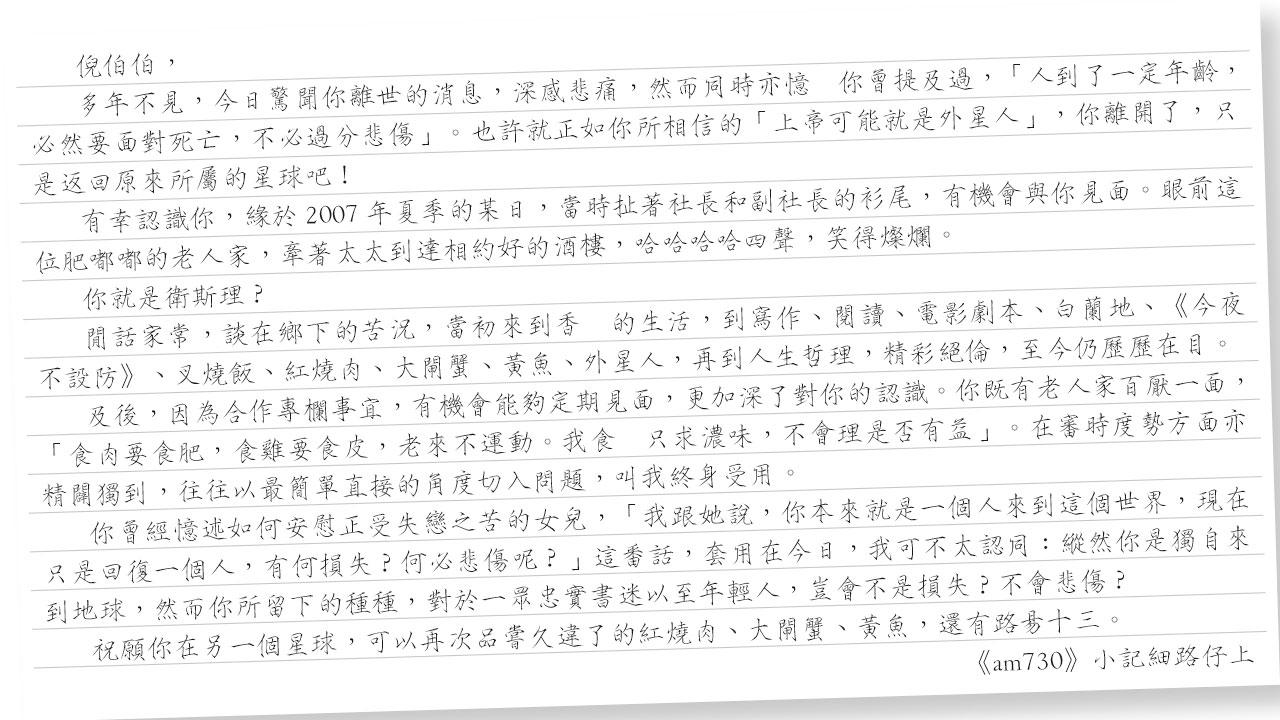 倪伯伯，
多年不見，今日驚聞你離世的消息，深感悲痛，然而同時亦憶　你曾提及過，「人到了一定年齡，
必然要面對死亡，不必過分悲傷」。也許就正如你所相信的「上帝可能就是外星人」，你離開了，只
是返回原來所屬的星球吧！
有幸認識你，緣於 2007 年夏季的某日，當時扯著社長和副社長的衫尾，有機會與你見面。眼前這
位肥嘟嘟的老人家，牽著太太到達相約好的酒樓，哈哈哈哈四聲，笑得燦爛。
你就是衛斯理？
閒話家常，談在鄉下的苦況，當初來到香　的生活，到寫作、閱讀、電影劇本、白蘭地、《今夜
不設防》、叉燒飯、紅燒肉、大閘蟹、黃魚、外星人，再到人生哲理，精彩絕倫，至今仍歷歷在目。
及後，因為合作專欄事宜，有機會能夠定期見面，更加深了對你的認識。你既有老人家百厭一面，
「食肉要食肥，食雞要食皮，老來不運動。我食　只求濃味，不會理是否有益」。在審時度勢方面亦
精闢獨到，往往以最簡單直接的角度切入問題，叫我終身受用。
你曾經憶述如何安慰正受失戀之苦的女兒，「我跟她說，你本來就是一個人來到這個世界，現在
只是回復一個人，有何損失？何必悲傷呢？」這番話，套用在今日，我可不太認同：縱然你是獨自來
到地球，然而你所留下的種種，對於一眾忠實書迷以至年輕人，豈會不是損失？不會悲傷？
祝願你在另一個星球，可以再次品嘗久違了的紅燒肉、大閘蟹、黃魚，還有路易十三。
《am730》小記細路仔上